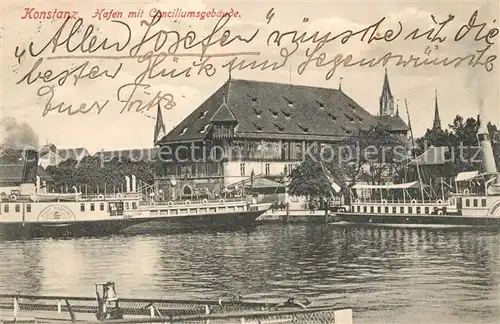 Konstanz. Hafen mit Conciliumsgebäude.
„Allen Josefen" wünsche ich die
besten Glück und Segenswünsche
Euer Fritz